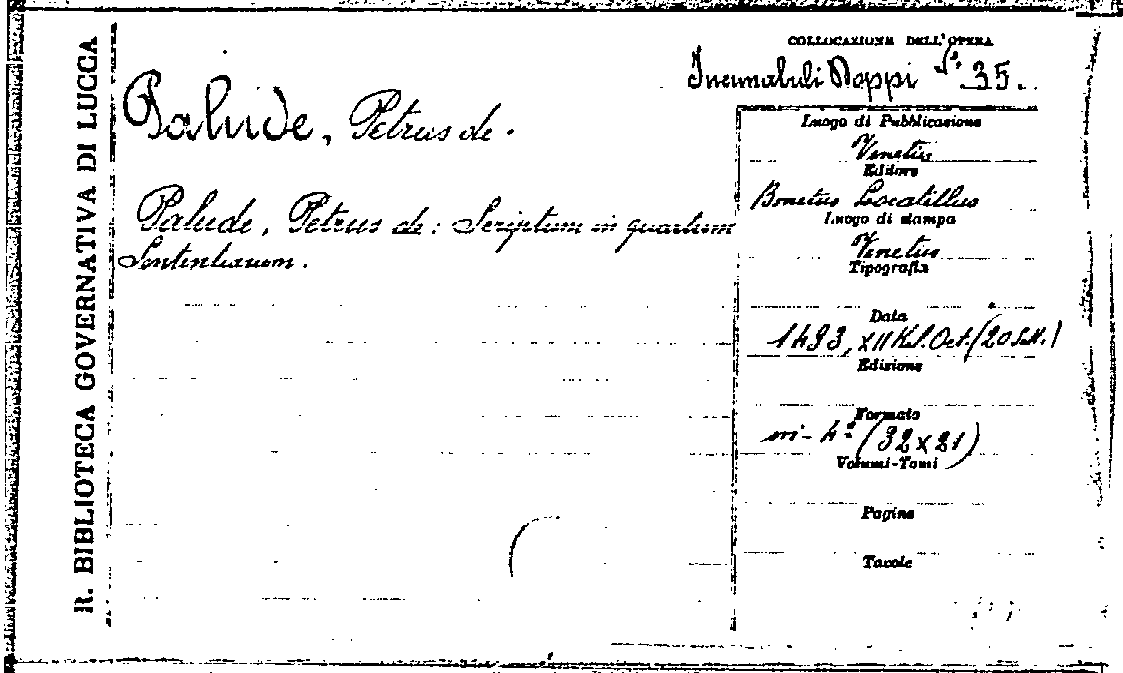 R. BIBLIOTECA GOVERNATIVA DI LUCCA
COLLOCAZIONE DELL'OPERA
Incunabuli Doppi N.º 35.
Palude, Petrus de.
Palude, Petrus de: Scriptum in quartum
Sententiarum.
Luogo di Pubblicazione
Venetiis
Editore
Bonetus Locatellus
Luogo di stampa
Venetiis
Tipografia
Data
1493, XII Kl. Oct. (20 Sett.)
Edizione
Formato
in-4º (32x21)
Volumi-Tomi
Pagine
Tavole